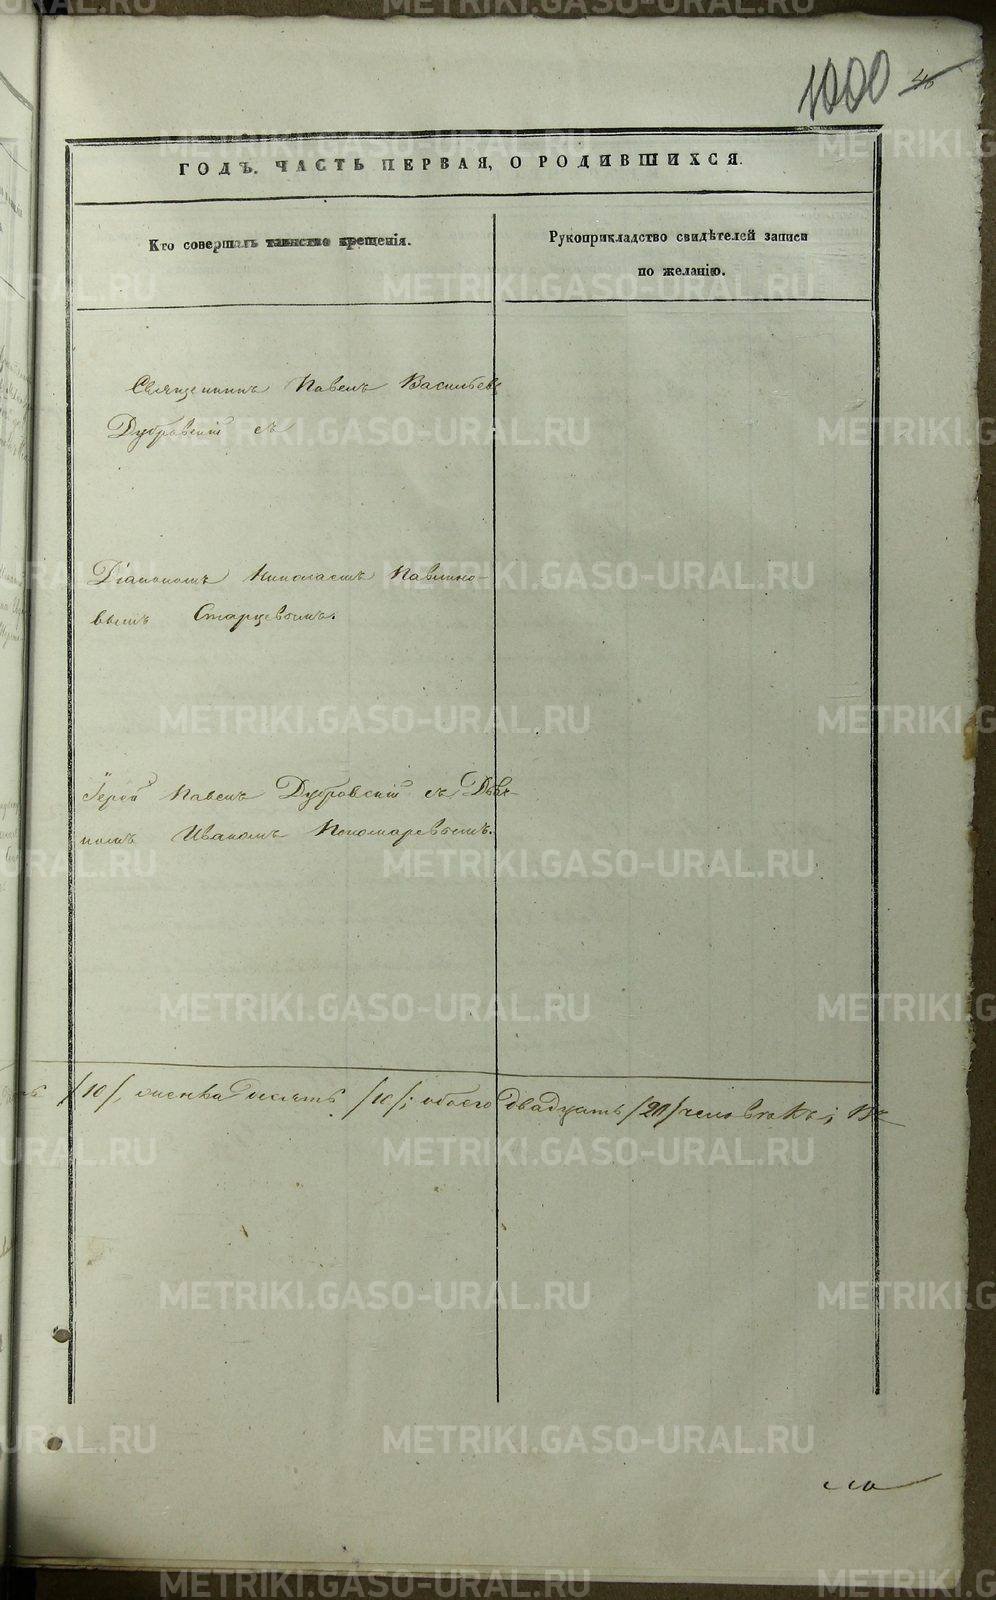 1000 46
ГОДЪ. ЧАСТЬ ПЕРВАЯ, О РОДИВШИХСЯ.
Кто совершалъ таинство крещенія.
Рукоприкладство свидѣтелей записи
по желанію.
Священникъ Павелъ Васильевъ
Дубровскій съ
Діакономъ Николаемъ Павлино-
вымъ Старцевымъ.
Іерей Павелъ Дубровскій съ Дьяч-
комъ Иваномъ Пономаревымъ.
/10/, женска десять /10/; обоего двадцать /20/ человѣкъ; Въ
METRIKI.GASO-URAL.RU